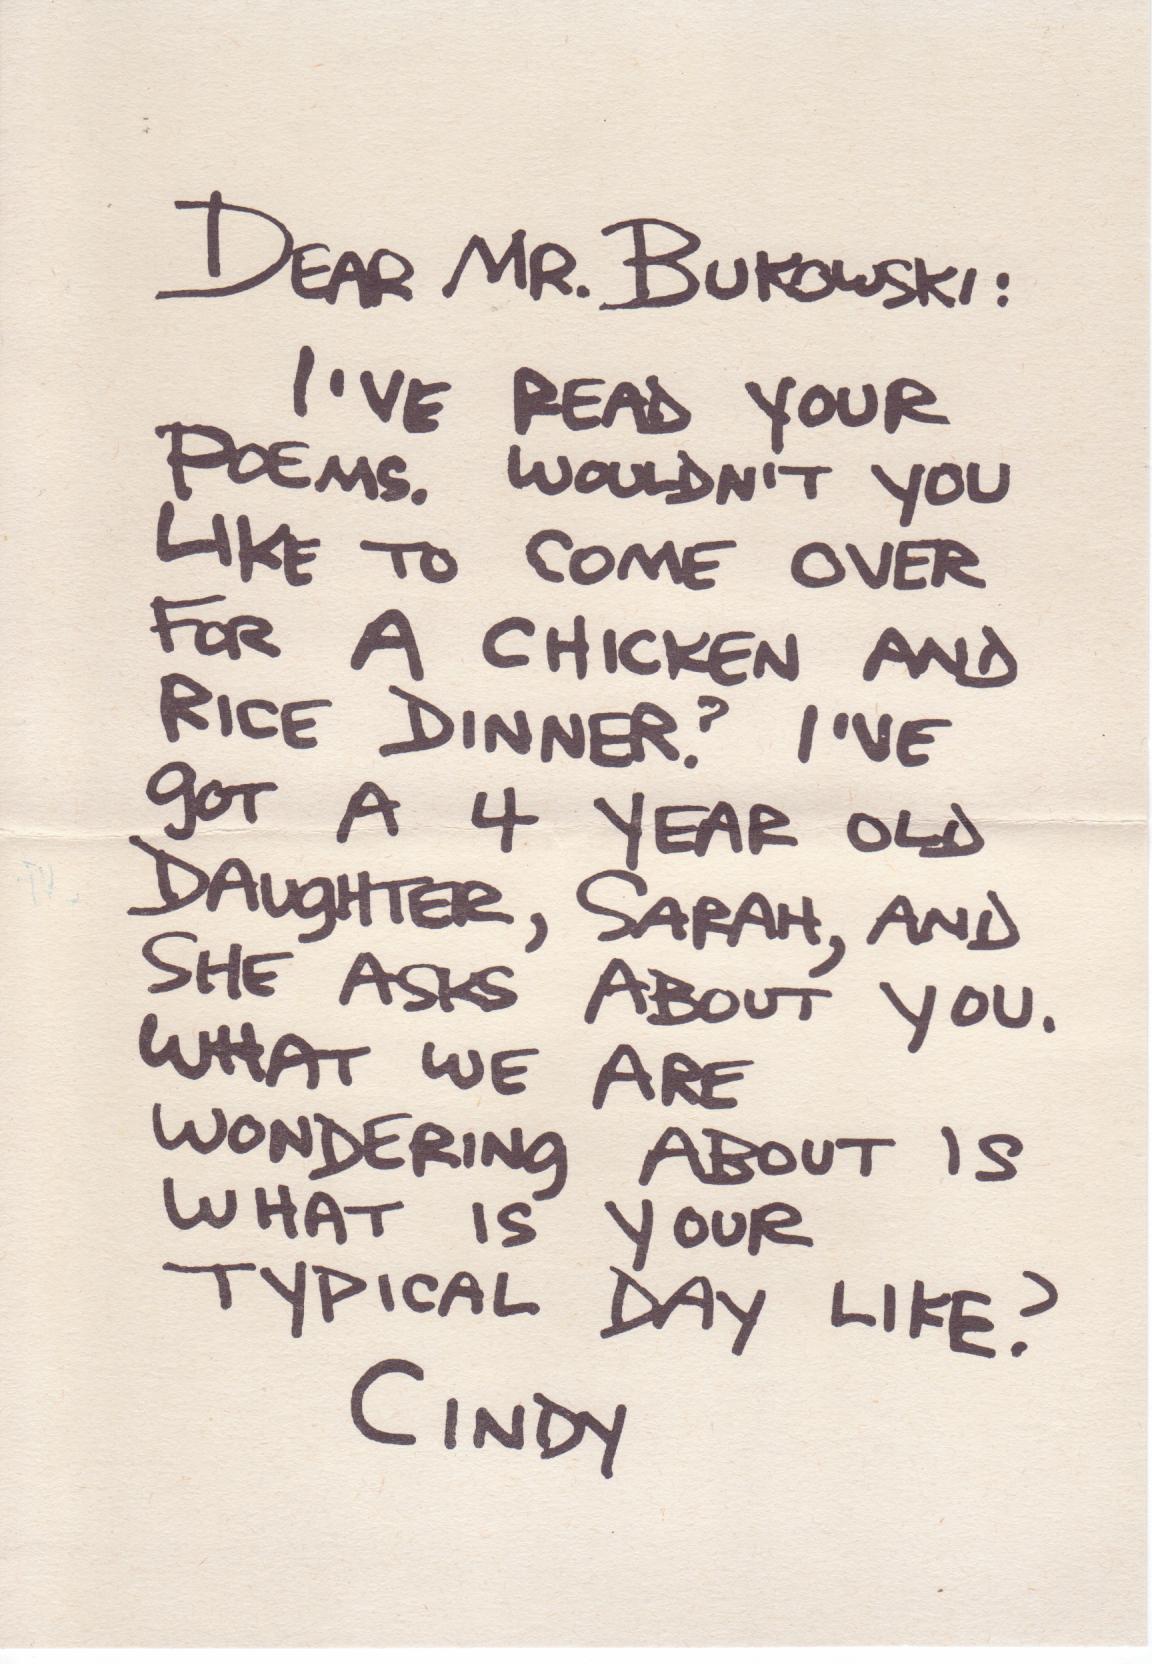 DEAR MR. BUKOWSKI:
I'VE READ YOUR
POEMS. WOULDN'T YOU
LIKE TO COME OVER
FOR A CHICKEN AND
RICE DINNER? I'VE
GOT A 4 YEAR OLD
DAUGHTER, SARAH, AND
SHE ASKS ABOUT YOU.
WHAT WE ARE
WONDERING ABOUT IS
WHAT IS YOUR
TYPICAL DAY LIKE?
CINDY